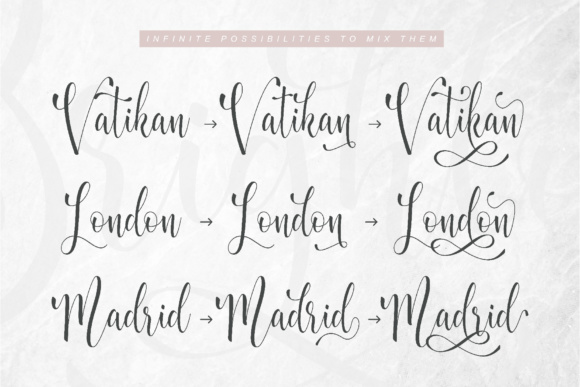 INFINITE POSSIBILITIES TO MIX THEM
Vatikan → Vatikan → Vatikan
London → London → London
Madrid → Madrid → Madrid